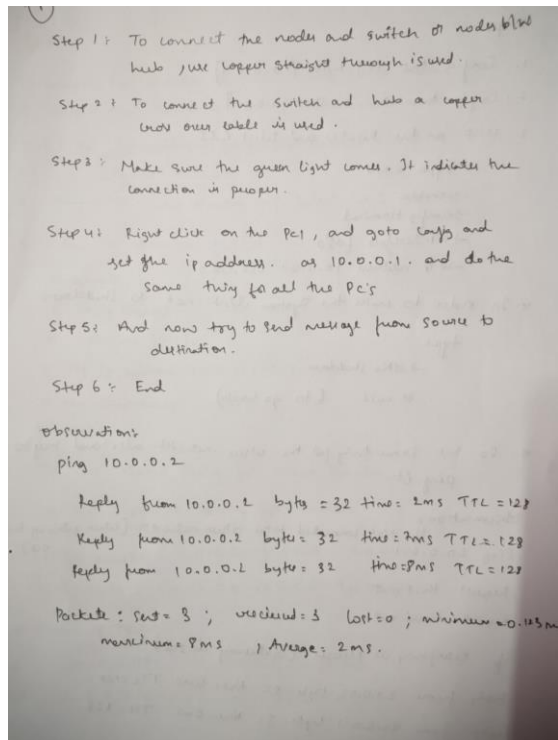 Step 1: To connect the nodes and switch or nodes b/w
hub , use copper straight through is used.
Step 2: To connect the switch and hub a copper
cross over cable is used.
Step 3: Make sure the green light comes. It indicates the
connection is proper.
Step 4: Right click on the Pc1, and goto config and
set the ip address. as 10.0.0.1. and do the
same thing for all the Pc's
Step 5: And now try to send message from source to
destination.
Step 6: End
observation:
ping 10.0.0.2
Reply from 10.0.0.2 bytes = 32 time = 2ms TTL = 128
Reply from 10.0.0.2 bytes = 32 time = 2ms TTL = 128
Reply from 10.0.0.2 bytes = 32 time = 8ms TTL = 128
Packets: sent = 3 ; recieved = 3 lost = 0 ; minimum = 0.123 m
maximum = 8ms , Average = 2ms.